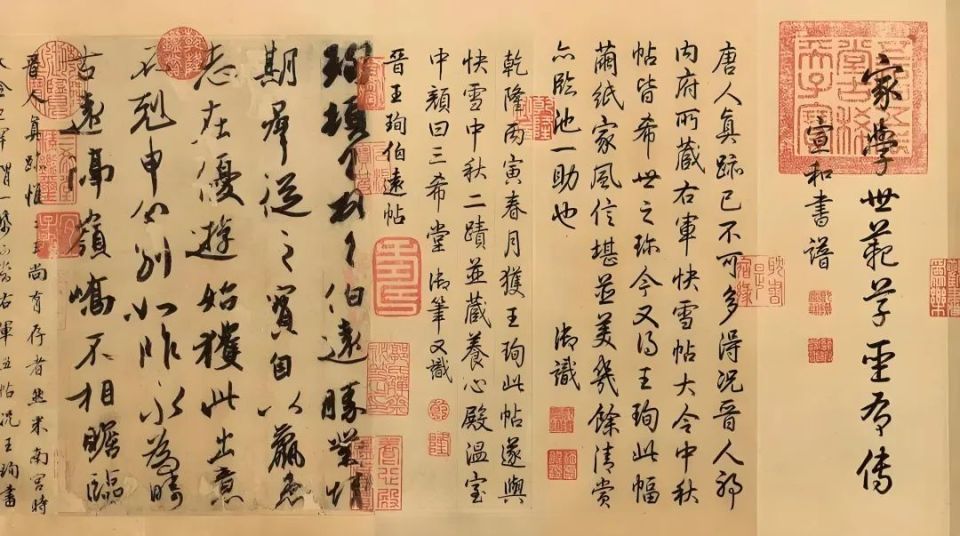 五福五代堂古稀天子寶
家學世範草聖有傳
宣和書譜
唐人真跡已不可多得况晋人耶
内府所藏右軍快雪帖大令中秋
帖皆希世之珍今又得王珣此幅
繭紙家風信堪並美幾餘清賞
亦臨池一助也 御識
乾隆丙寅春月獲王珣此帖遂與
快雪中秋二蹟並藏養心殿温室
中顔曰三希堂 御筆又識
晉王珣伯遠帖
珣頓首頓首伯遠勝業情
期群從之寶自以羸患
志在優遊始獲此出意
不剋申分别如昨永為疇
古遠隔嶺嶠不相瞻臨
晉人真跡惟二王尚有存者然米南宫時
大令已罕謂一紙可當右軍五帖况王珣書